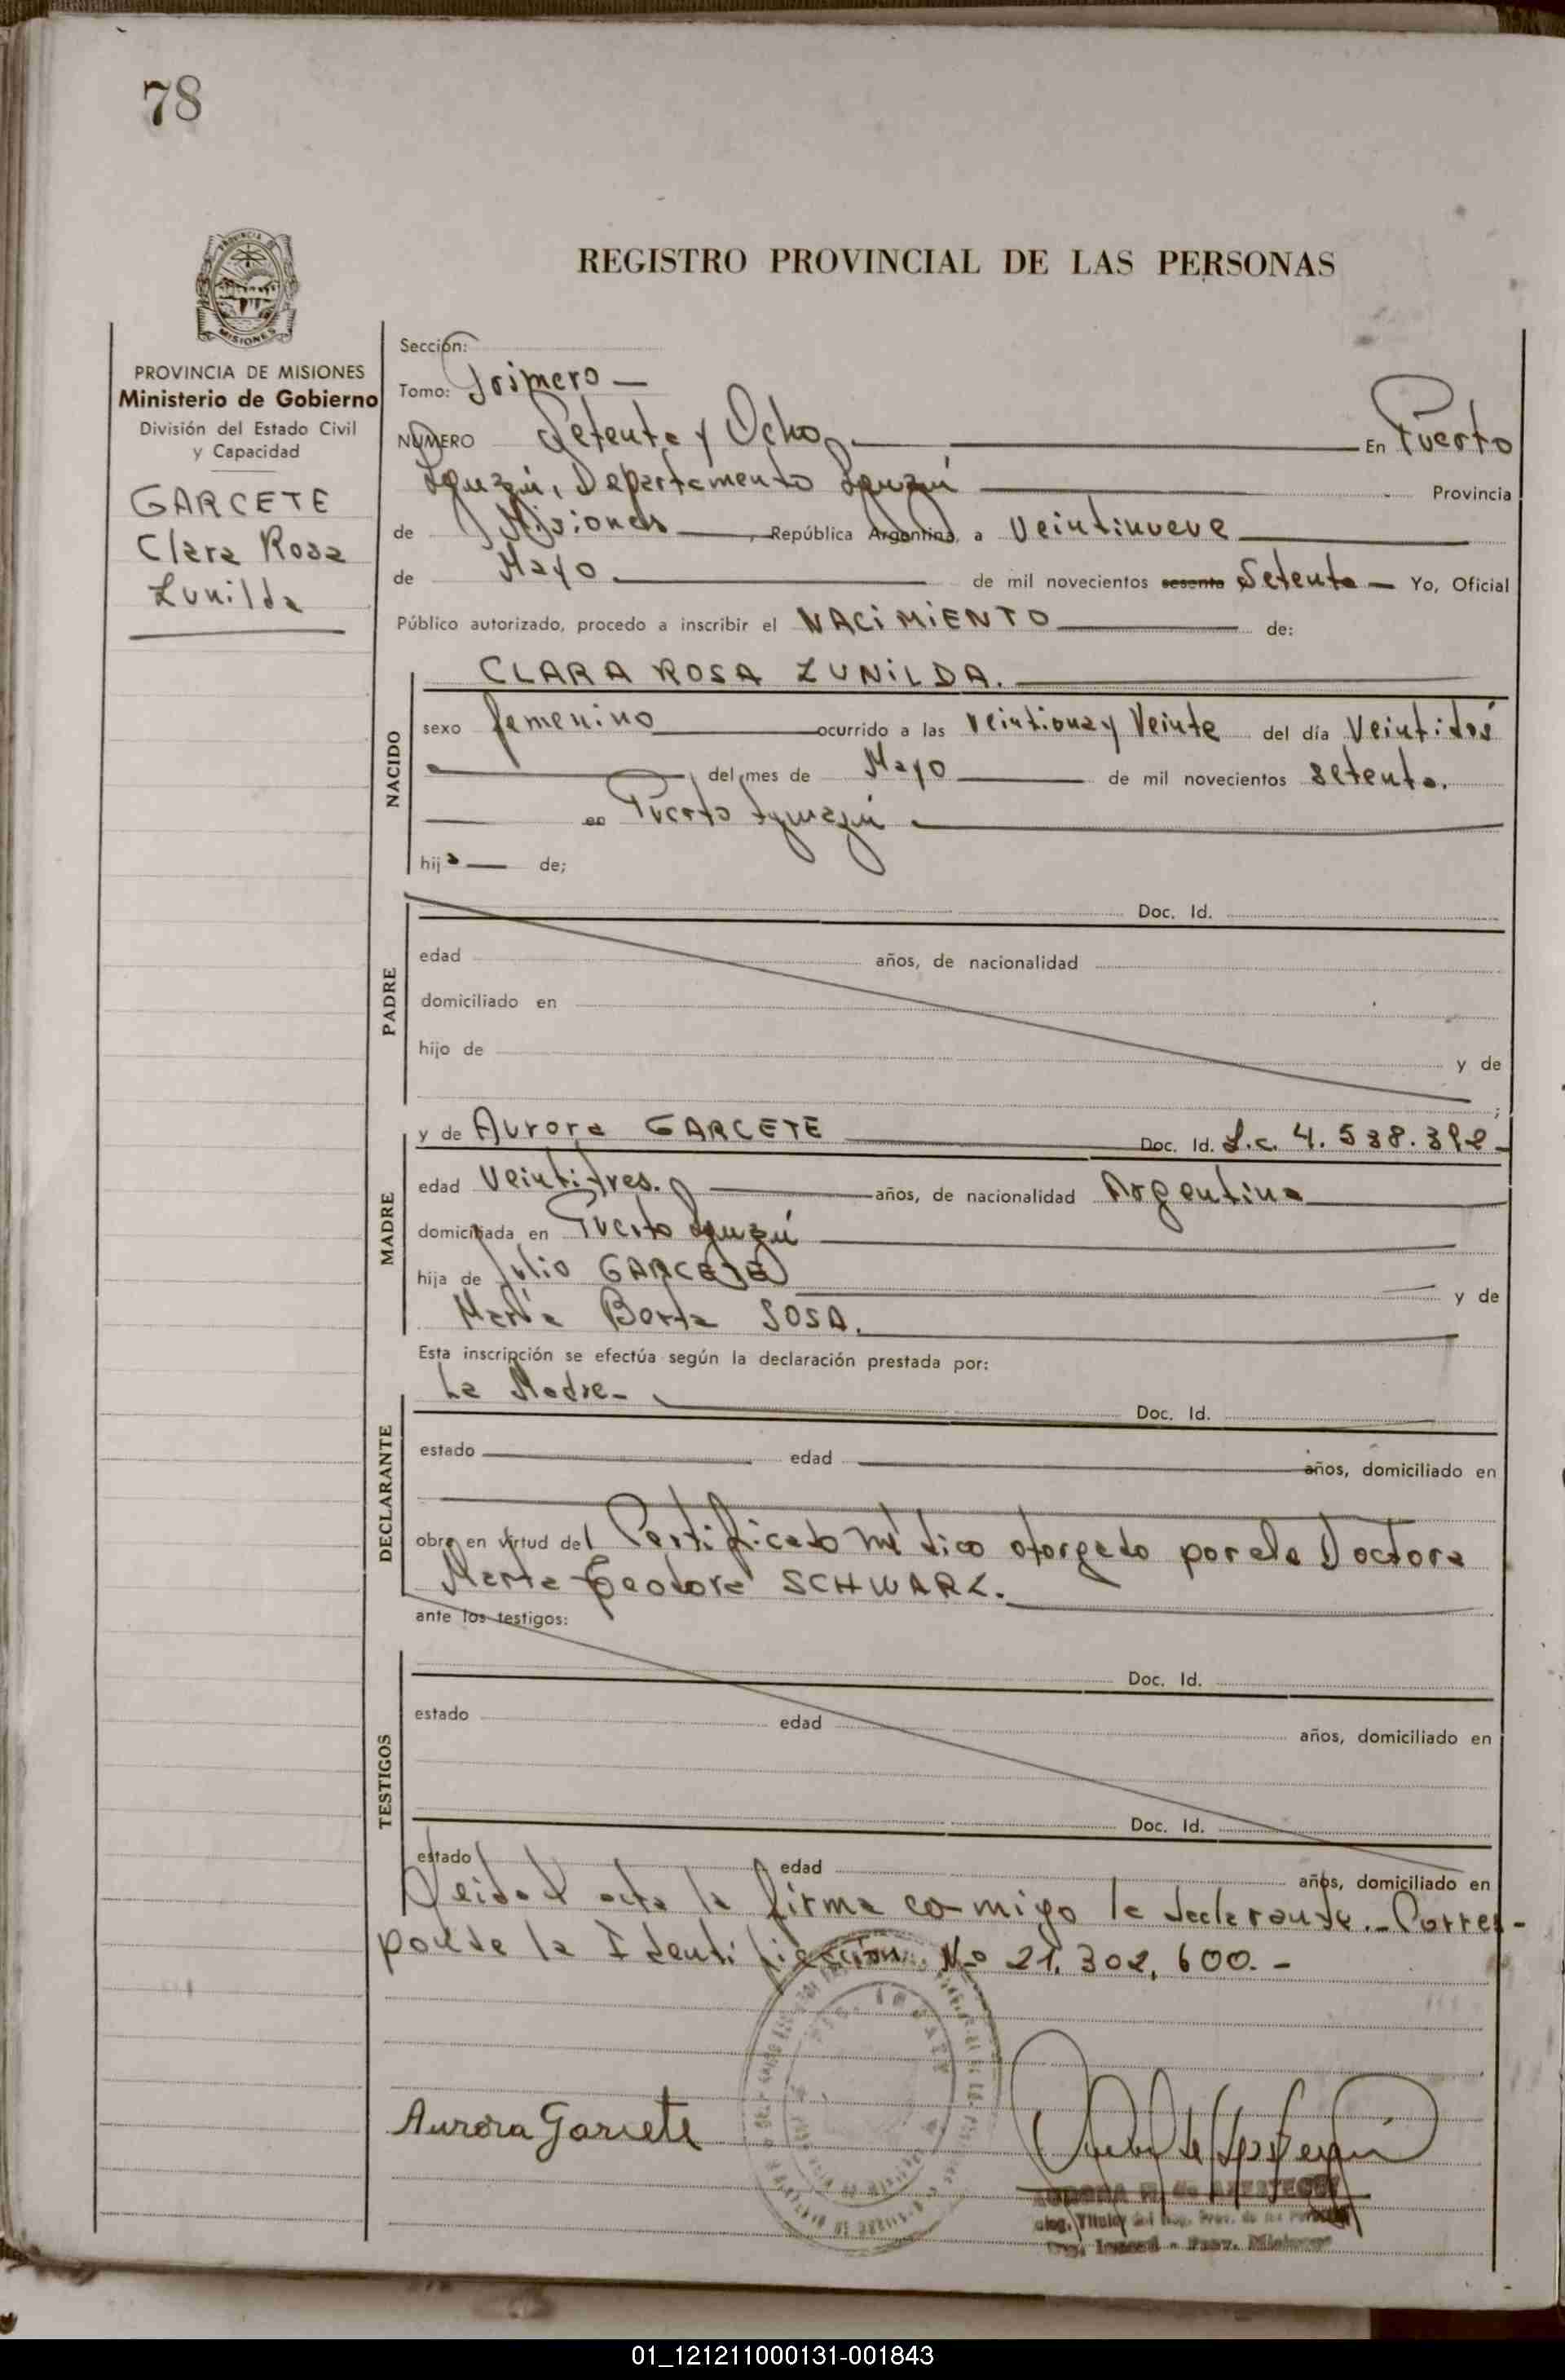 78
REGISTRO PROVINCIAL DE LAS PERSONAS
MISIONES
PROVINCIA DE MISIONES
Ministerio de Gobierno
División del Estado Civil
y Capacidad
GARCETE
Clara Rosa
Zunilda
Sección:
Tomo: Primero —
NUMERO Setenta y Ocho — En Puerto
Iguazú, Departamento Iguazú — Provincia
de Misiones —, República Argentina, a veintinueve
de Mayo — de mil novecientos sesenta Setenta — Yo, Oficial
Público autorizado, procedo a inscribir el NACiMiENTO — de:
CLARA ROSA ZUNiLDA. —
NACIDO
sexo femenino — ocurrido a las veintiuna y Veinte del día Veintidós
— del mes de Mayo — de mil novecientos setenta.
— en Puerto Iguazú —
hija — de;
PADRE
Doc. Id.
edad años, de nacionalidad
domiciliado en
hijo de y de
;
MADRE
y de Aurora GARCETE — Doc. Id. L.c. 4.538.392-
edad Veintitres. — años, de nacionalidad Argentina
domiciliada en Puerto Iguazú —
hija de Julio GARCETE — y de
María Berta SOSA. —
Esta inscripción se efectúa según la declaración prestada por:
DECLARANTE
La Madre- — Doc. Id.
estado — edad — años, domiciliado en
obra en virtud del Certificado médico otorgado por ela Doctora
Marta Teodora SCHWARZ. —
ante los testigos:
TESTIGOS
Doc. Id.
estado edad años, domiciliado en
Doc. Id.
estado edad años, domiciliado en
Leida el acta la firma conmigo la declarante.- Corres-
ponde la Identificación Nº 21.302.600.-
Aurora Garcete
01_121211000131-001843